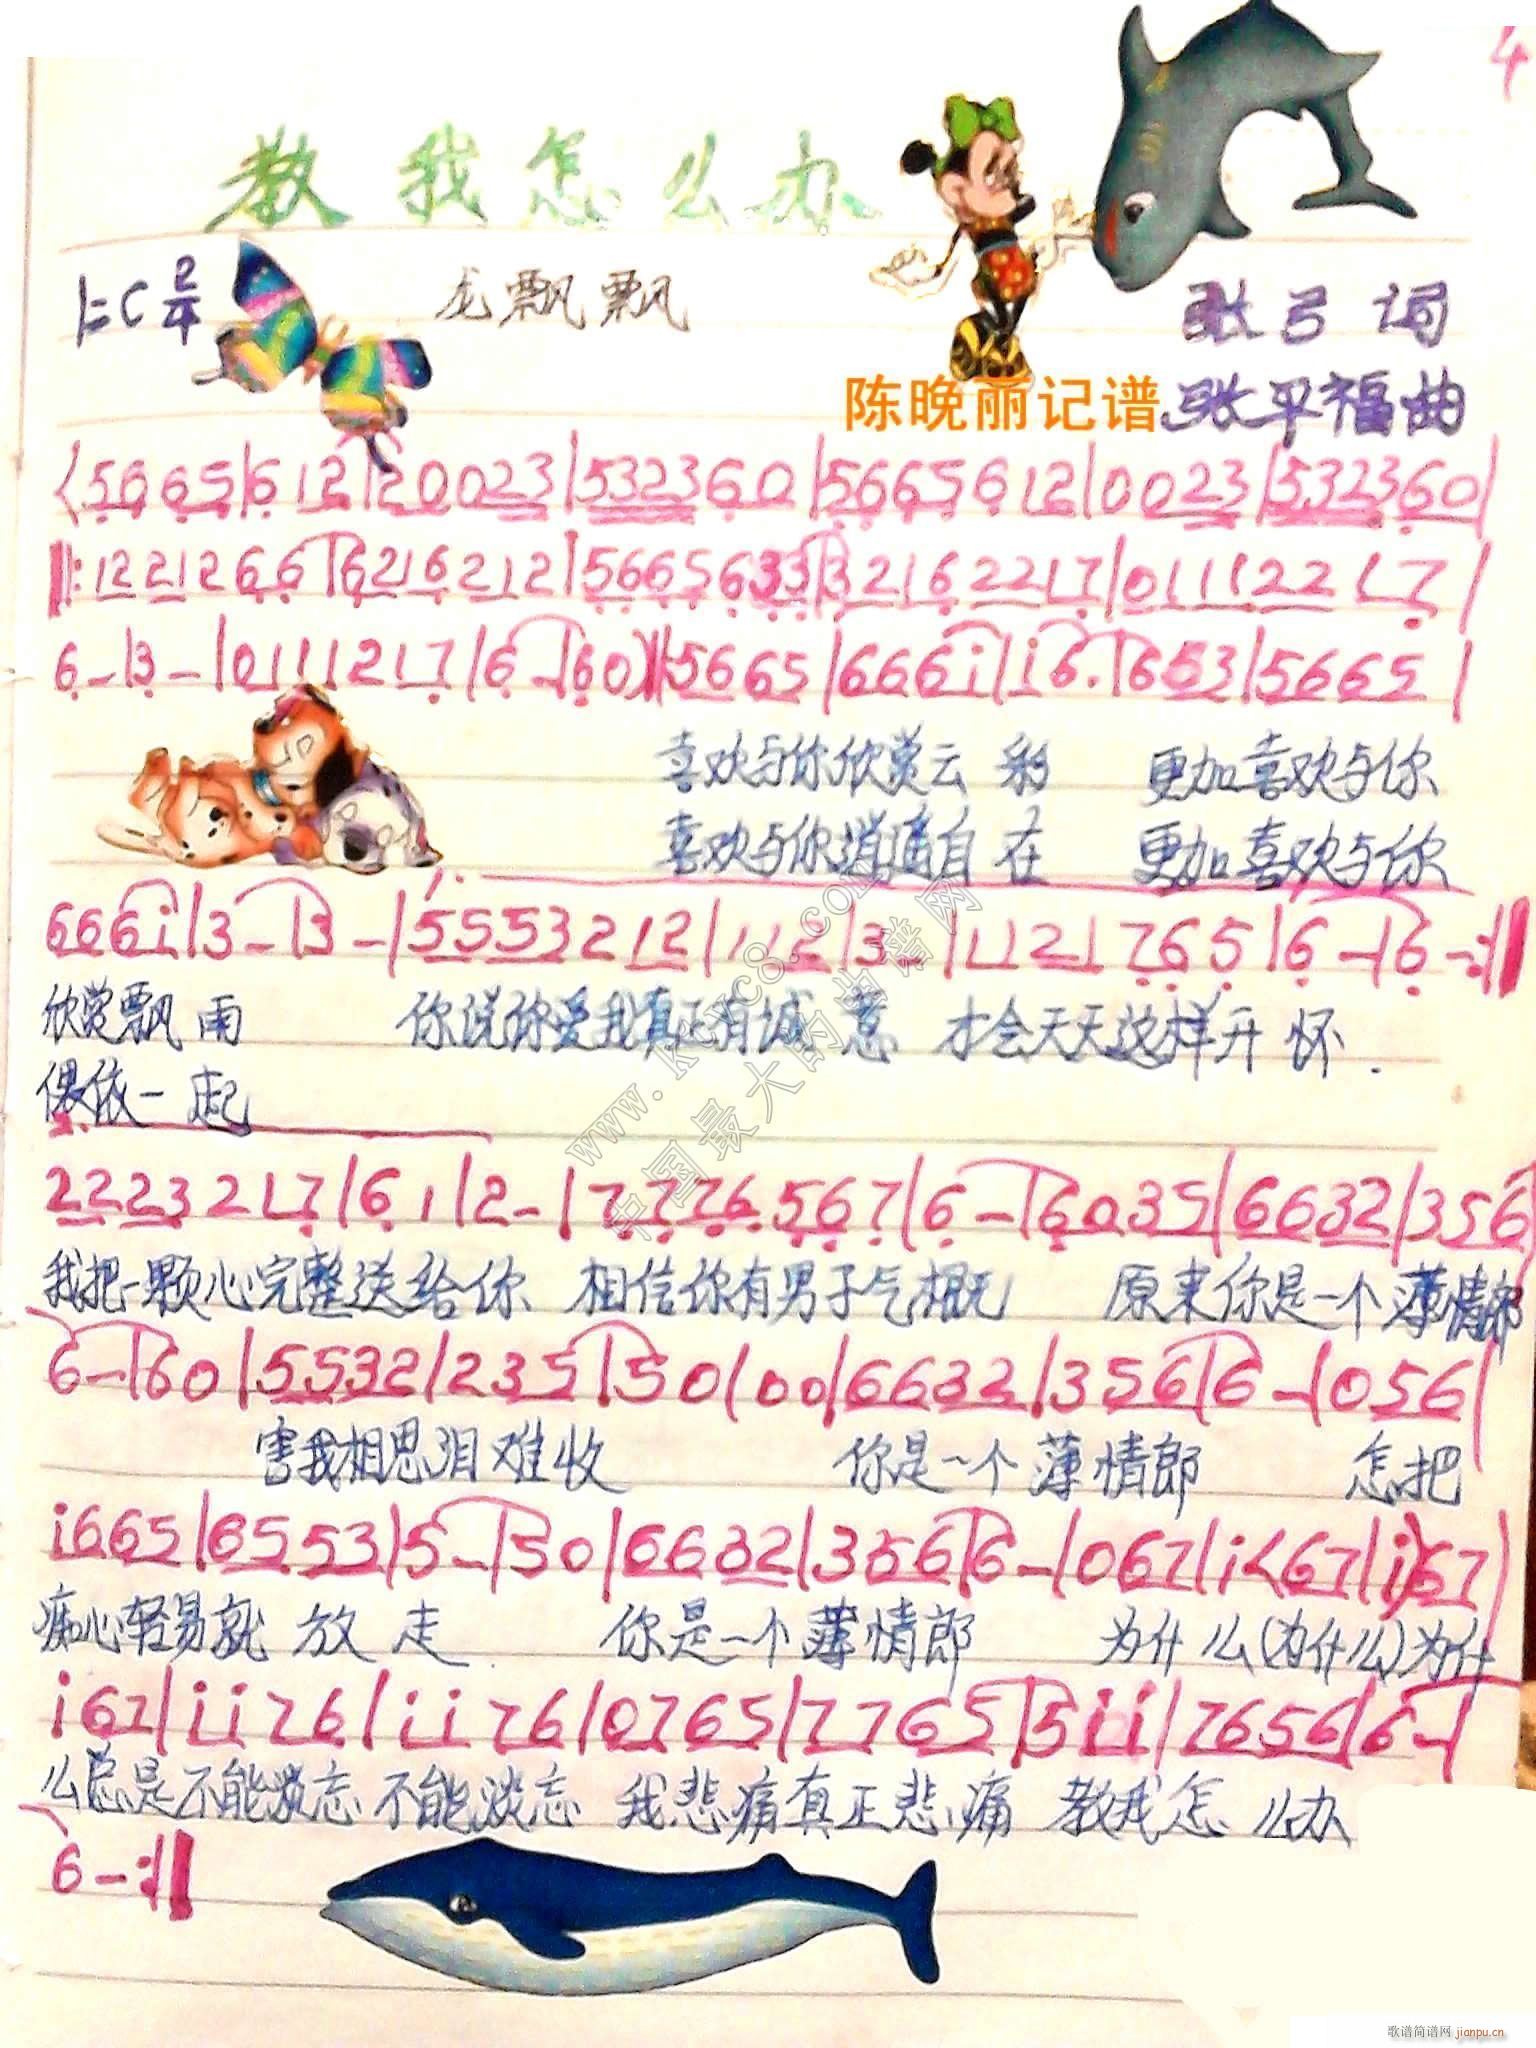 4
教我怎么办
1=C 2/4
龙飘飘
张弓 词
陈晚丽记谱 张平福曲
(5665|612|20023|532360|5665612|0023|532360|
‖:1221266|6216212|5665633|32162217|01112217|
6-|3-|0111217|6-|60)‖5665|666i|i6.|653|5665|
喜欢与你欣赏云 彩 更加喜欢与你
喜欢与你逍遥自 在 更加喜欢与你
666i|3-|3-|5553212|112|3|1121765|6-|6-:‖
欣赏飘 雨 你说你爱我真正有诚 意 才会天天这样开 怀.
偎依一 起
2223217|61|2-|7776567|6-|6035|6632|356
我把一颗心完整送给你 相信你有男子气概 原来你是一个薄情郎
6-|60|5532|235|50|00|6632|356|6-|056|
害我相思泪难收 你是一个薄情郎 怎把
i665|6553|5-|50|6632|356|6-|067|i<67|i)67|
痴心轻易就 放 走 你是一个薄情郎 为什么(为什么)为什
i67|ii76|ii76|0765|7765|5ii|7656|6-|
么总是不能淡忘 不能淡忘 我悲痛真正悲痛 教我怎么办
6-:‖
www.ktvc8.com
中国最大的曲谱网
歌谱简谱网 jianpu.cn